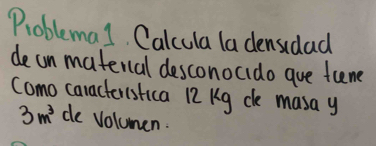 Problema 1. Calcula la densidad
de un material desconocido que tiene
como característica 12 Kg de masa y
3 m³ de volumen.